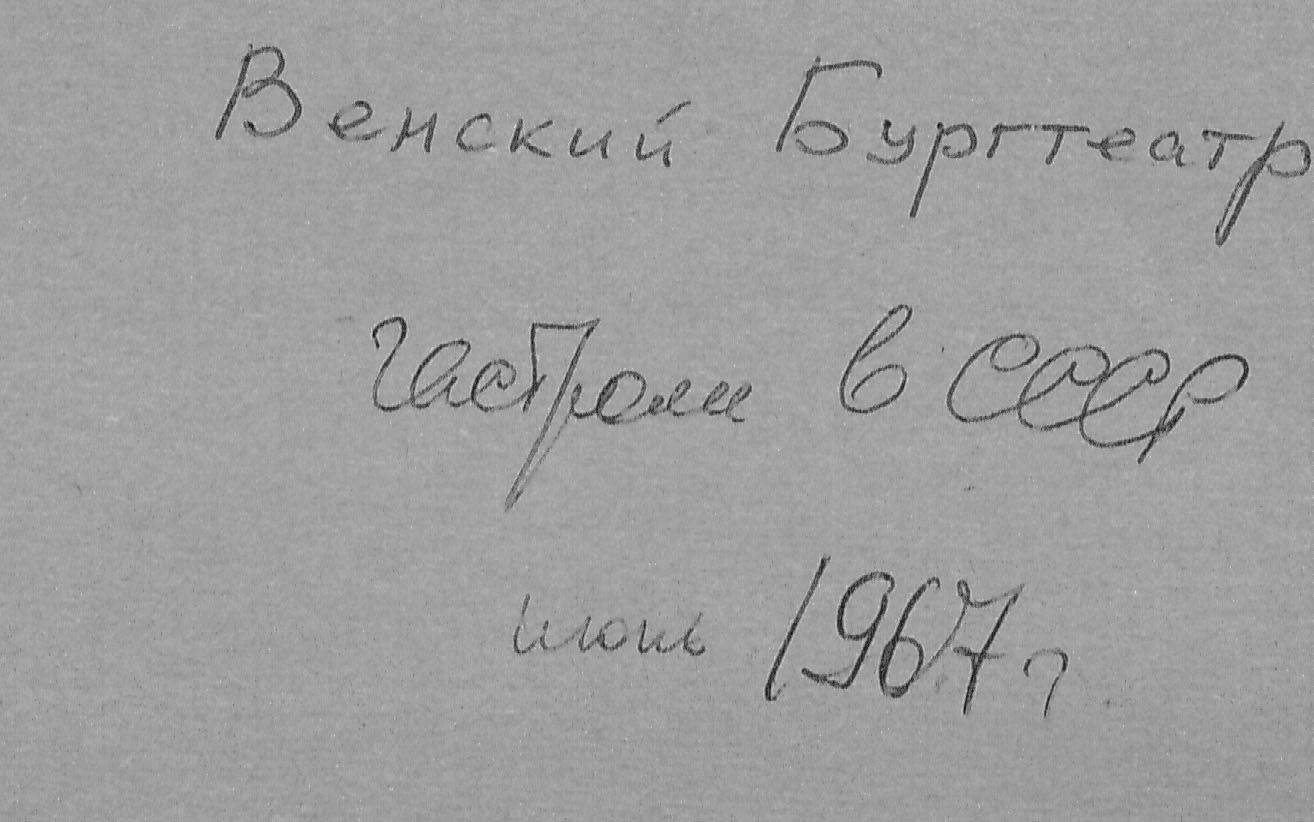 Венский Бургтеатр
Гастроли в СССР
июнь 1967 г.